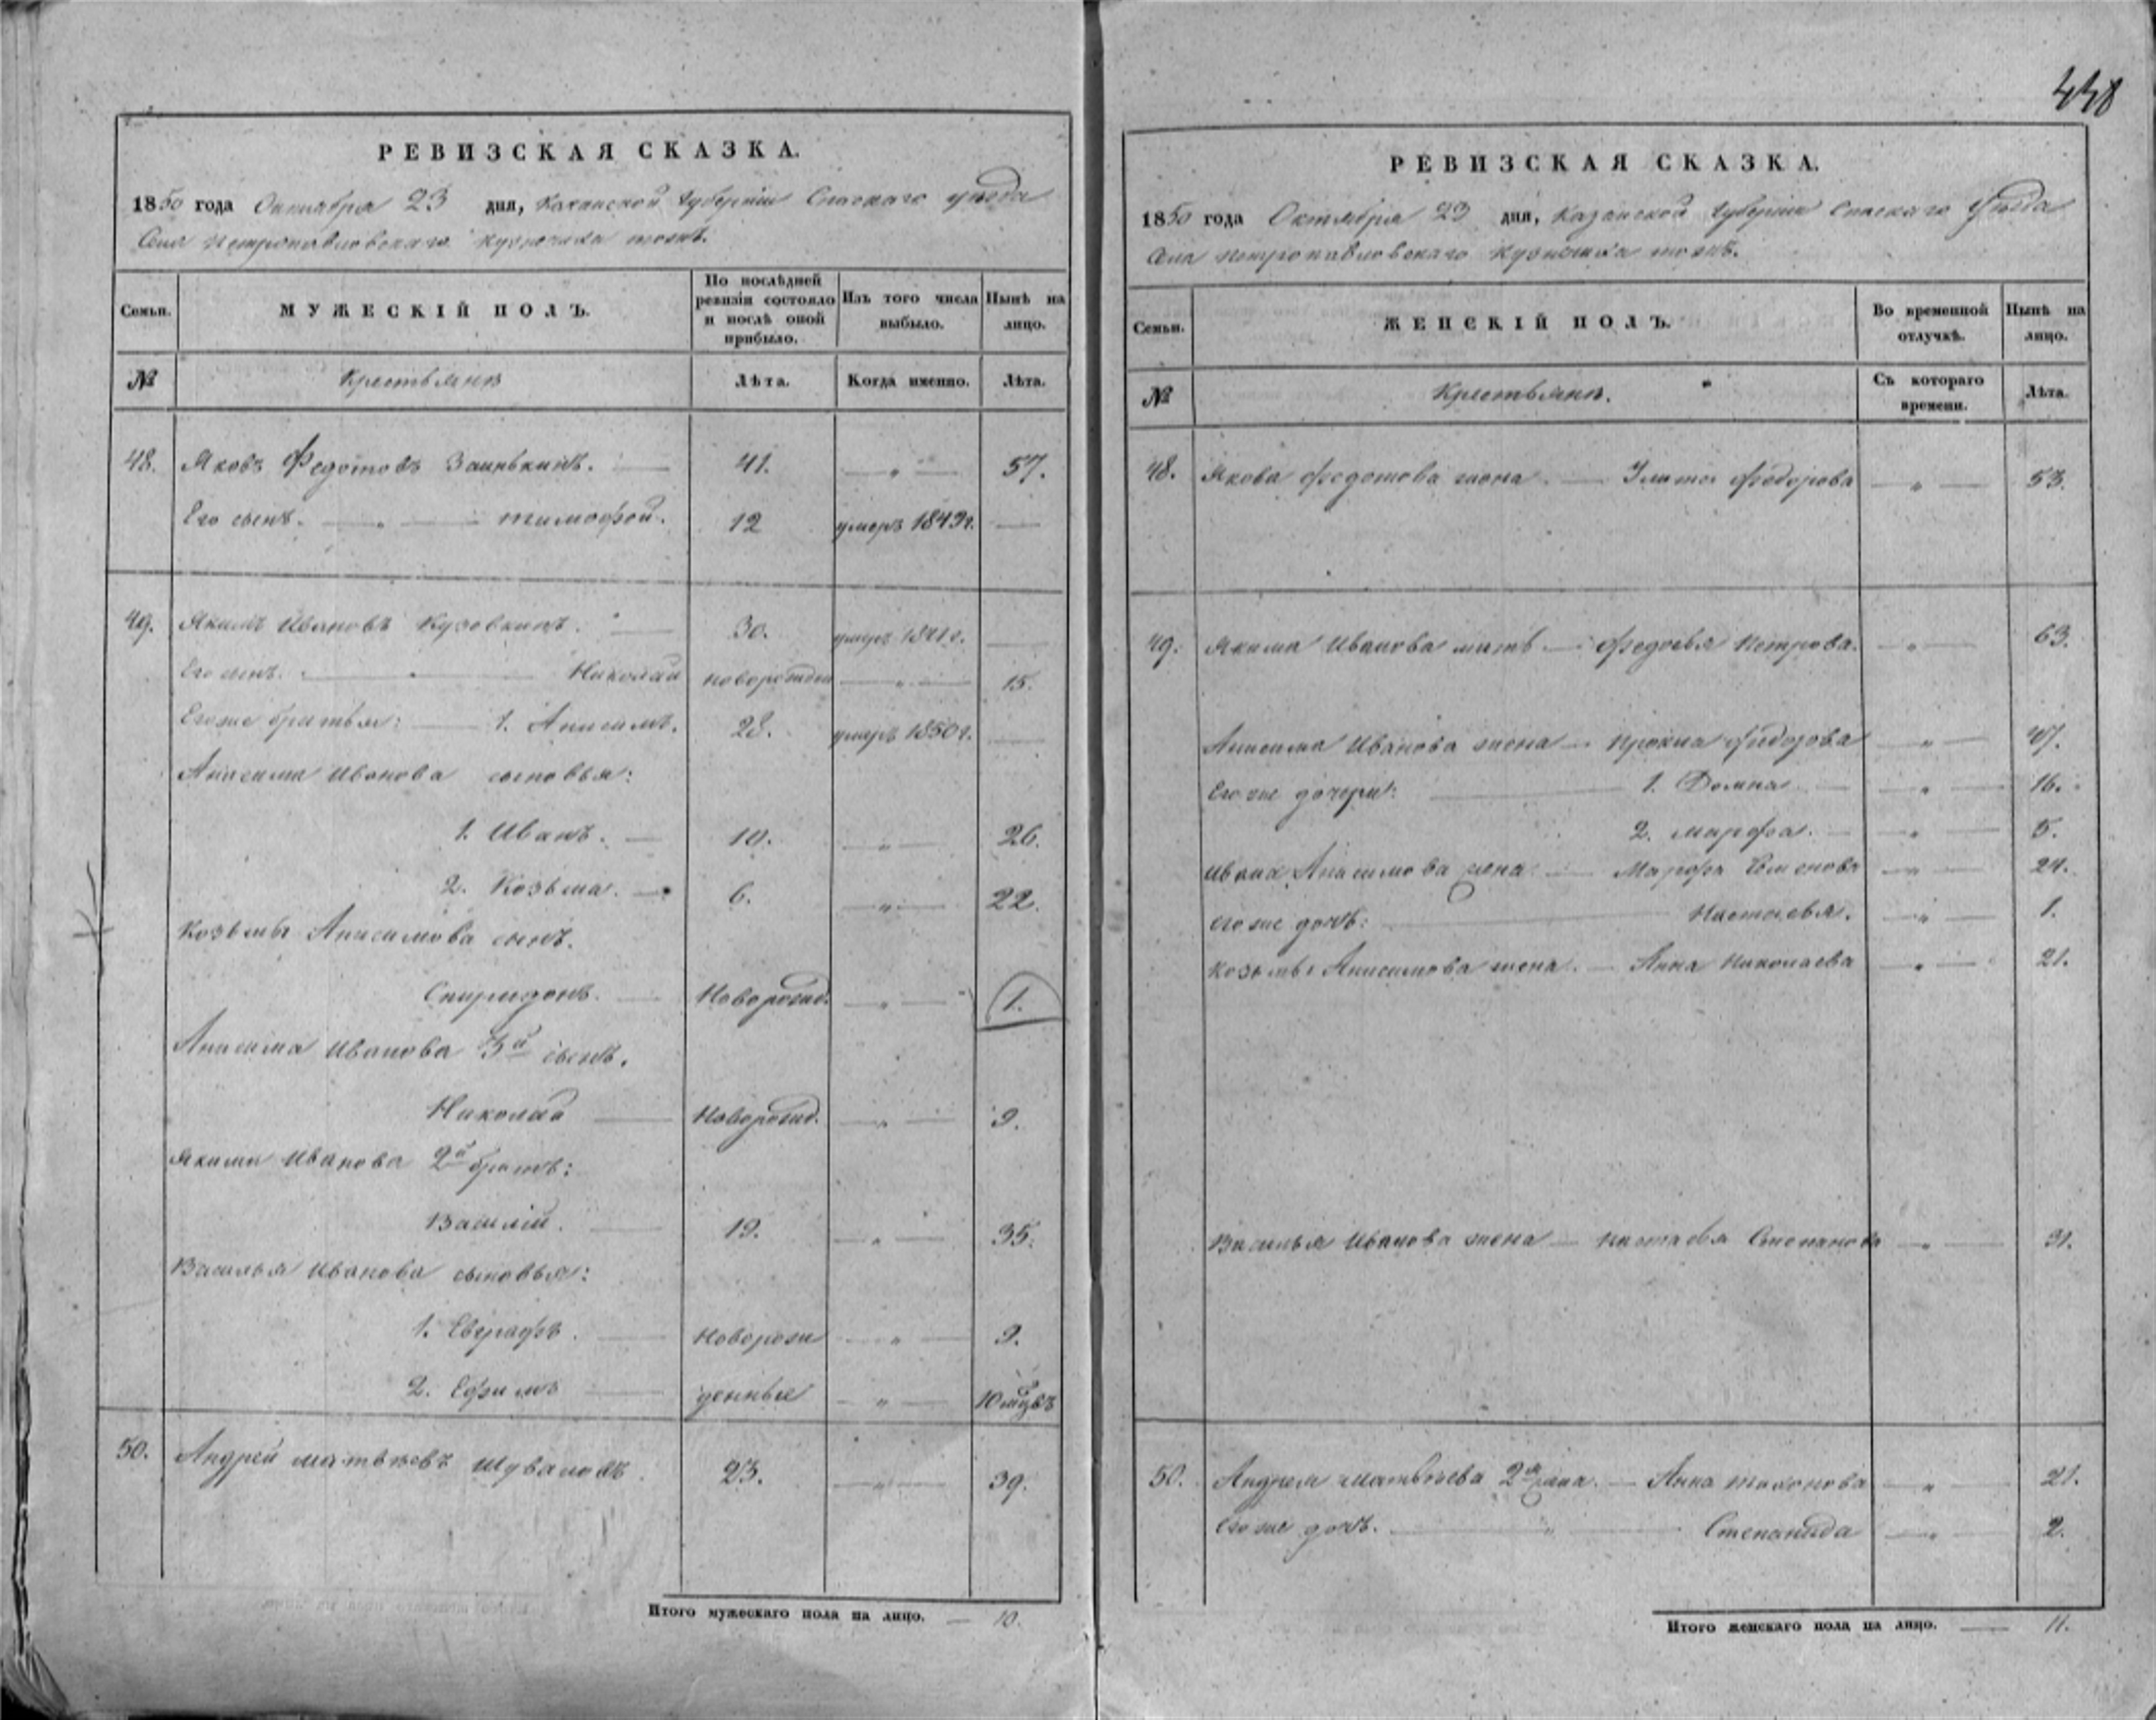 448
РЕВИЗСКАЯ СКАЗКА.
1850 года Октября 23 дня, Казанской Губерніи Спаскаго уѣзда
Села Петропавловскаго Кузнечиха тожъ.
Семьи.
МУЖЕСКІЙ ПОЛЪ.
По послѣдней ревизіи состояло и послѣ оной прибыло.
Изъ того числа выбыло.
Нынѣ на лицо.
№
Крестьяне
Лѣта.
Когда именно.
Лѣта.
48. Яковъ Федотовъ 41. — „ — 57.
Его сынъ. — „ — Тимофей. 12 умеръ 1849г. —
49. Якимъ Ивановъ Кузовкинъ. — 30. умеръ 1841г. —
Его сынъ. — Николай новорожден — „ — 15.
Его же братья: — 1. Анисимъ. 28. умеръ 1850г. —
Анисима Иванова сыновья:
1. Иванъ. — 10. — „ — 26.
2. Козьма. — 6. — „ — 22.
Козьмы Анисимова сынъ.
Спиридонъ. — Новорожд. — „ — 1.
Анисима Иванова 3й сынъ.
Николай — Новорожд. — „ — 9.
Якима Иванова 2й братъ:
Василій. — 19. — „ — 35.
Василья Иванова сыновья:
1. Евграфъ. — Новорож — „ — 9.
2. Ефимъ — денные — „ — 10 мцвъ
50. Андрей Матвѣевъ Шуваловъ. 23. — „ — 39.
Итого мужескаго пола на лицо. — 10.
РЕВИЗСКАЯ СКАЗКА.
1850 года Октября 23 дня, Казанской Губерніи Спаскаго Уѣзда
Села Петропавловскаго Кузнечиха тожъ.
Семьи.
ЖЕНСКІЙ ПОЛЪ.
Во временной отлучкѣ.
Нынѣ на лицо.
№
Крестьяне.
Съ котораго времени.
Лѣта.
48. Якова Федотова жена. — Федорова — „ — 53.
49. Якима Иванова мать. — Федосья Петрова. — „ — 63.
Анисима Иванова жена — Федорова — „ — 47.
Его же дочери: — 1. Домна — „ — 16.
2. Марфа. — „ — 5.
Ивана Анисимова жена — Марфа Семенова — „ — 24.
Его же дочь: — Настасья. — „ — 1.
Козьмы Анисимова жена. — Анна Николаева — „ — 21.
Василья Иванова жена — Настасья Степанова — „ — 31.
50. Андрея Матвѣева 2я жена. — Анна — „ — 21.
Его же дочь. — „ — Степанида — „ — 2.
Итого женскаго пола на лицо. — 11.